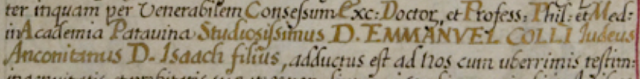 ter inquam per Venerabilem Consessum Exc: Doctor, et Profess: Phil: et Med:
in Academia Patauina Studiosissimus D. EMMANVEL COLLI Iudeus
Anconitanus D. Isaach filius, adductus est ad nos cum uberrimis testim